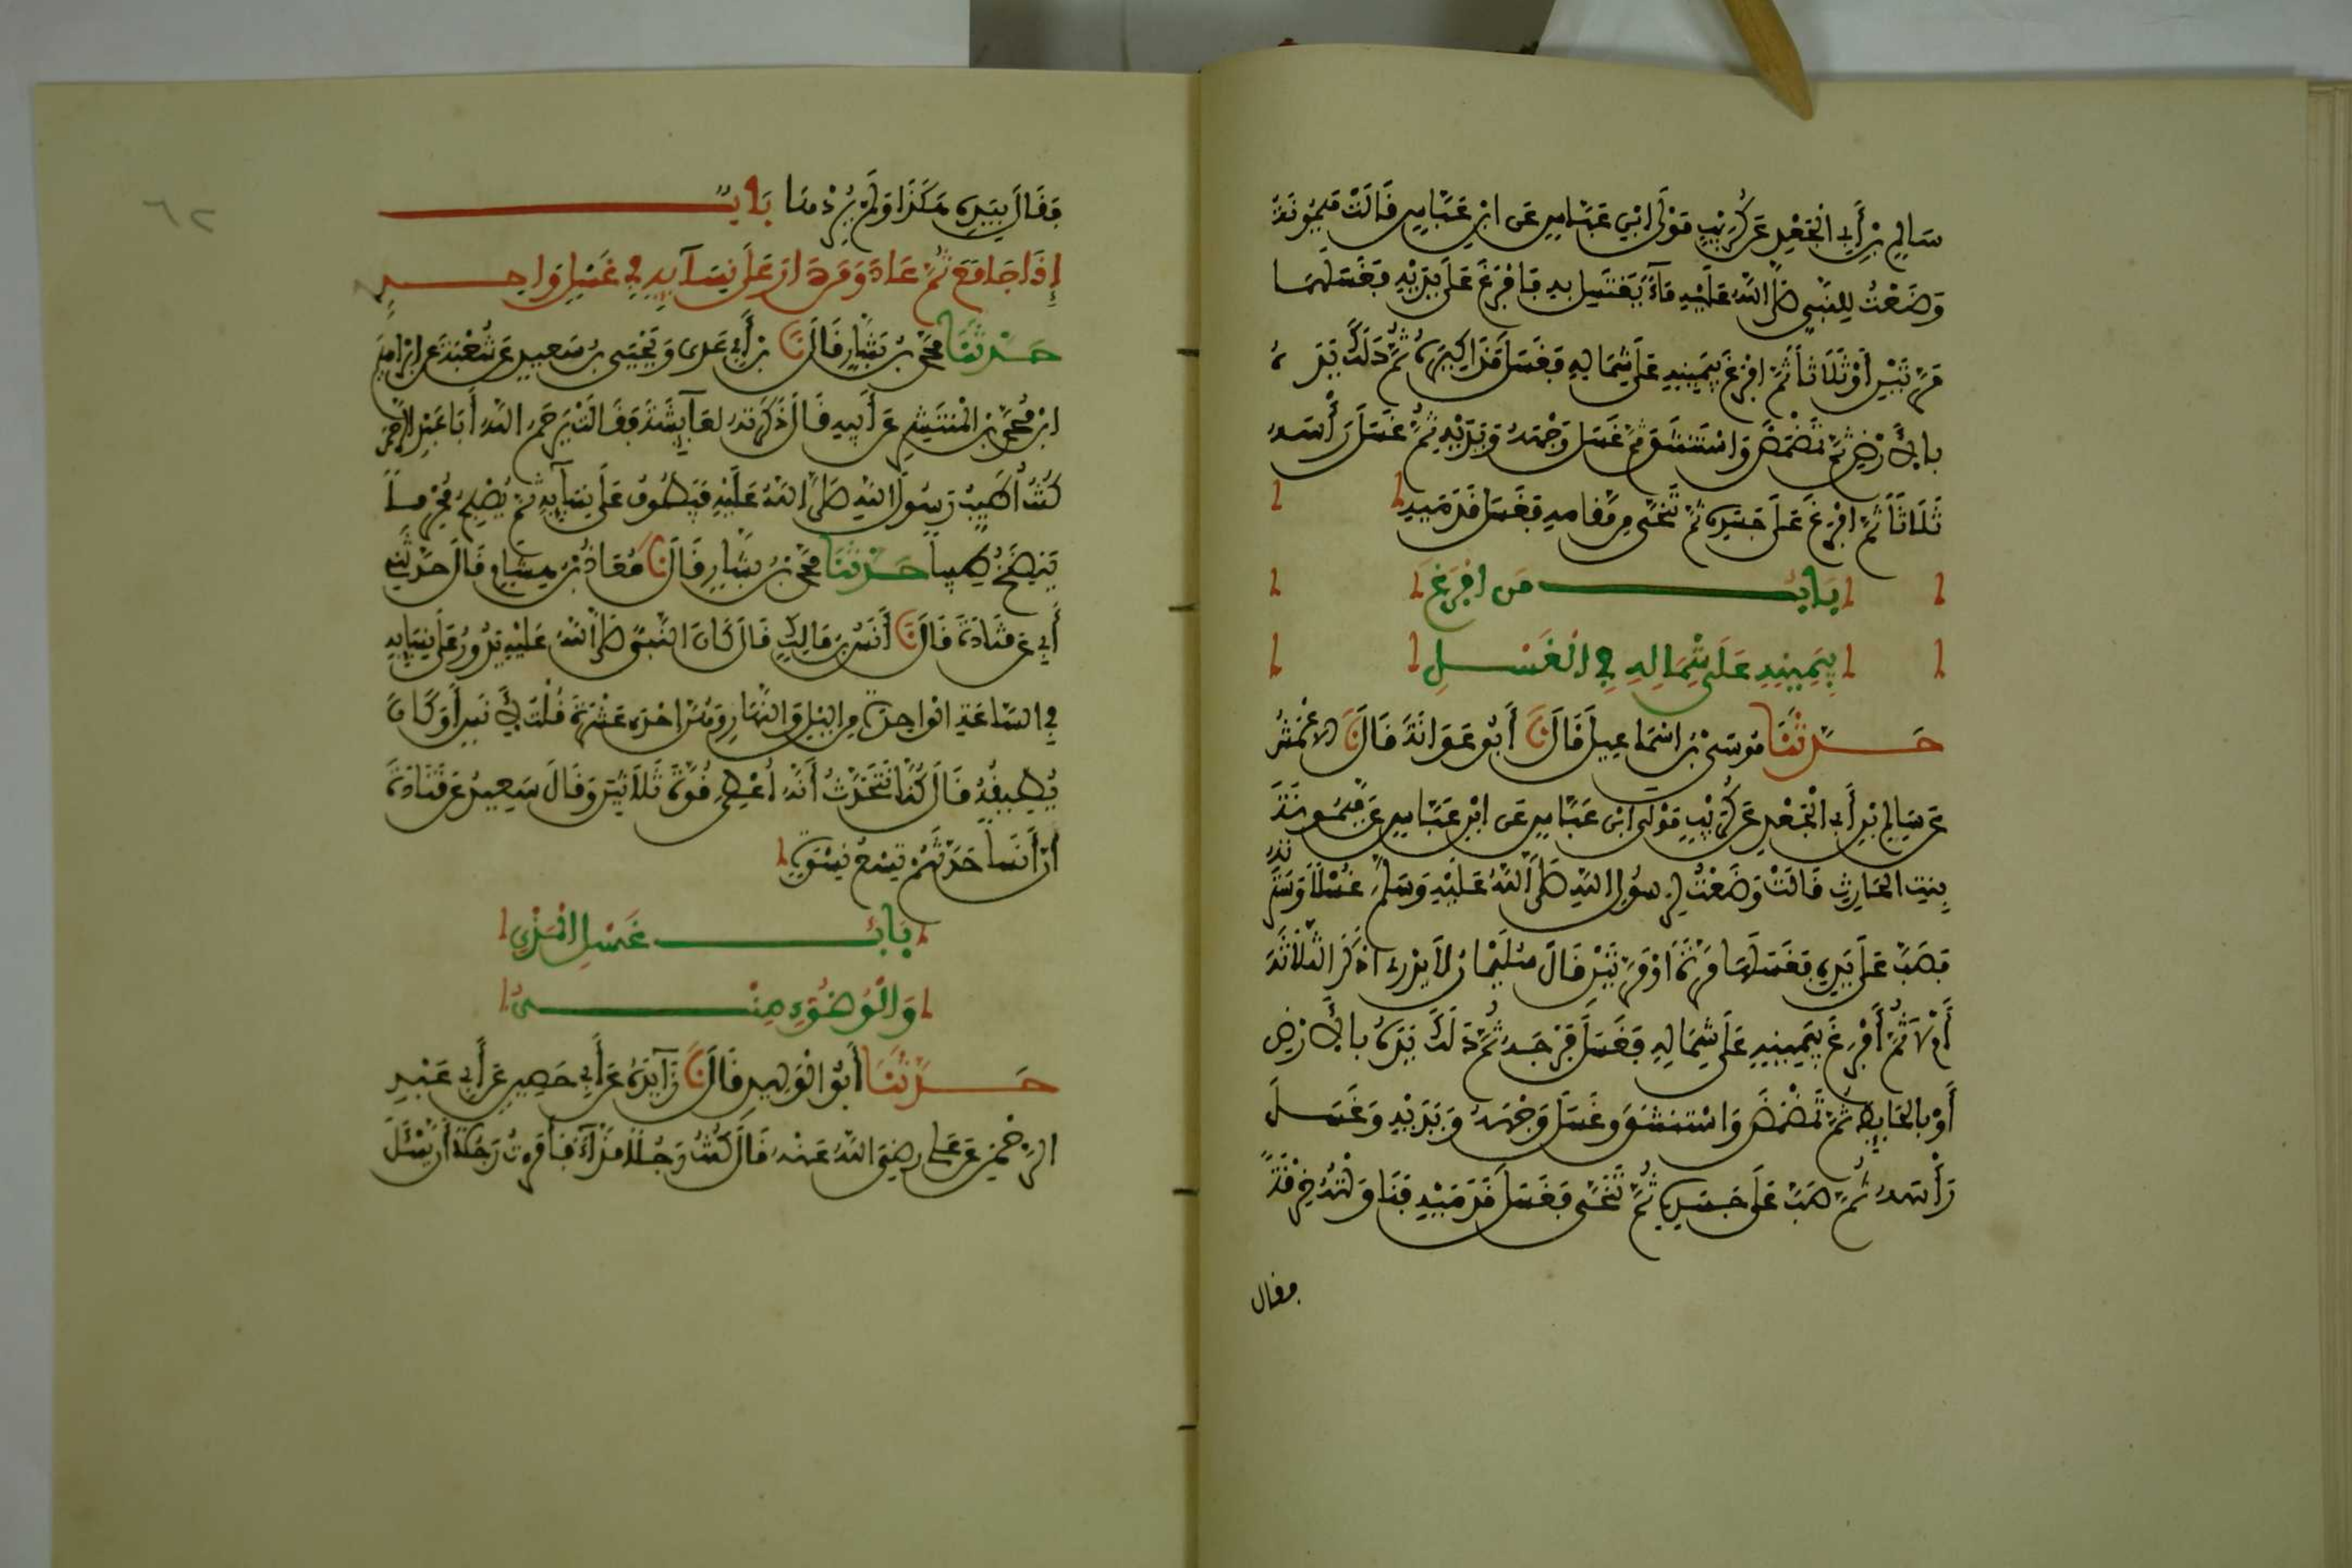 سَالِمِ بْنِ أَبِي الْجَعْدِ عَنْ كُرَيْبٍ مَوْلَى ابْنِ عَبَّاسٍ عَنِ ابْنِ عَبَّاسٍ قَالَتْ مَيْمُونَةُ
وَضَعْتُ لِلنَّبِيِّ صَلَّى اللَّهُ عَلَيْهِ مَاءً يَغْتَسِلُ بِهِ فَأَفْرَغَ عَلَى يَدَيْهِ فَغَسَلَهُمَا
مَرَّتَيْنِ أَوْ ثَلَاثًا ثُمَّ افْرَغَ بِيَمِينِهِ عَلَى شِمَالِهِ فَغَسَلَ مَذَاكِيرَهُ ثُمَّ دَلَكَ يَدَهُ
بِالْأَرْضِ ثُمَّ تَمَضْمَضَ وَاسْتَنْشَقَ ثُمَّ غَسَلَ وَجْهَهُ وَيَدَيْهِ ثُمَّ غَسَلَ رَأْسَهُ
ثَلَاثًا ثُمَّ افْرَغَ عَلَى جَسَدِهِ ثُمَّ تَنَحَّى مِنْ مَقَامِهِ فَغَسَلَ قَدَمَيْهِ
بَابُ مَنِ افْرَغَ
بِيَمِينِهِ عَلَى شِمَالِهِ فِي الْغَسْلِ
حَدَّثَنَا مُوسَى بْنُ اسْمَاعِيلَ قَالَ نَا أَبُو عَوَانَةَ قَالَ نَا الاعْمَشُ
عَنْ سَالِمِ بْنِ أَبِي الْجَعْدِ عَنْ كُرَيْبٍ مَوْلَى ابْنِ عَبَّاسٍ عَنِ ابْنِ عَبَّاسٍ عَنْ مَيْمُونَةَ
بِنْتِ الْحَارِثِ قَالَتْ وَضَعْتُ لِرَسُولِ اللَّهِ صَلَّى اللَّهُ عَلَيْهِ وَسَلَّمَ غُسْلًا وَسَتَرْتُهُ
فَصَبَّ عَلَى يَدِهِ فَغَسَلَهَا مَرَّةً اوْ مَرَّتَيْنِ قَالَ سُلَيْمَانُ لَا أَدْرِي اذَكَرَ الثَّالِثَةَ
أَمْ لَا ثُمَّ أَفْرَغَ بِيَمِينِهِ عَلَى شِمَالِهِ فَغَسَلَ فَرْجَهُ ثُمَّ دَلَكَ يَدَهُ بِالْأَرْضِ
أَوْ بِالْحَايِطِ ثُمَّ تَمَضْمَضَ وَاسْتَنْشَقَ وَغَسَلَ وَجْهَهُ وَيَدَيْهِ وَغَسَلَ
رَأْسَهُ ثُمَّ صَبَّ عَلَى جَسَدِهِ ثُمَّ تَنَحَّى فَغَسَلَ قَدَمَيْهِ فَنَاوَلْتُهُ خِرْقَةً
فقال
٦٢
فَقَالَ بِيَدِهِ هَكَذَا وَلَمْ يُرِدْهَا بَابُ
إِذَا جَامَعَ ثُمَّ عَادَ وَمَنْ دَارَ عَلَى نِسَآيِهِ فِي غَسْلٍ وَاحِدٍ
حَدَّثَنَا مُحَمَّدُ بْنُ بَشَّارٍ قَالَ نَا بْنُ أَبِي عَدِى وَيَحْيَى بْنُ سَعِيدٍ عَنْ شُعْبَةَ عَنْ ابْرَاهِيمَ
ابْنِ مُحَمَّدِ بْنِ الْمُنْتَشِرِ عَنْ أَبِيهِ قَالَ ذَكَرْتُهُ لِعَآيِشَةَ فَقَالَتْ يَرْحَمُ اللَّهُ أَبَا عَبْدِ الرَّحْمَنِ
كُنْتُ أُطَيِّبُ رَسُولَ اللَّهِ صَلَّى اللَّهُ عَلَيْهِ فَيَطُوفُ عَلَى نِسَآيِهِ ثُمَّ يُصْبِحُ مُحْرِماً
يَنْضَخُ طِيباً حَدَّثَنَا مُحَمَّدُ بْنُ بَشَّارٍ قَالَ نَا مُعَاذُ بْنُ هِشَامٍ قَالَ حَدَّثَنِي
أَبِي عَنْ قَتَادَةَ قَالَ نَا أَنَسُ بْنُ مَالِكٍ قَالَ كَانَ النَّبِيُّ صَلَّى اللَّهُ عَلَيْهِ يَدُورُ عَلَى نِسَايِهِ
فِي السَّاعَةِ الْوَاحِدَةِ مِنَ اللَّيْلِ وَالنَّهَارِ وَهُنَّ احْدَى عَشْرَةَ قُلْتُ لِأَنَسٍ أَوَ كَانَ
يُطِيقُهُ قَالَ كُنَّا نَتَحَدَّثُ أَنَّهُ اعْطِيَ قُوَّةَ ثَلَاثِينَ وَقَالَ سَعِيدٌ عَنْ قَتَادَةَ
أَنَّ أَنَساً حَدَّثَهُمْ تِسْعُ نِسْوَةٍ
بَابُ غَسْلِ الْمَذْيِ
وَالْوُضُوءِ مِنْهُ
حَدَّثَنَا أَبُو الْوَلِيدِ قَالَ نَا زَآيِدَةُ عَنْ أَبِي حَصِينٍ عَنْ أَبِي عَبْدِ
الرَّحْمَنِ عَنْ عَلِي رضِيَ اللَّهُ عَنْهُ قَالَ كُنْتُ رَجُلًا مَذَّآءً فَأَمَرْتُ رَجُلًا أَنْ يَسْئَلَ